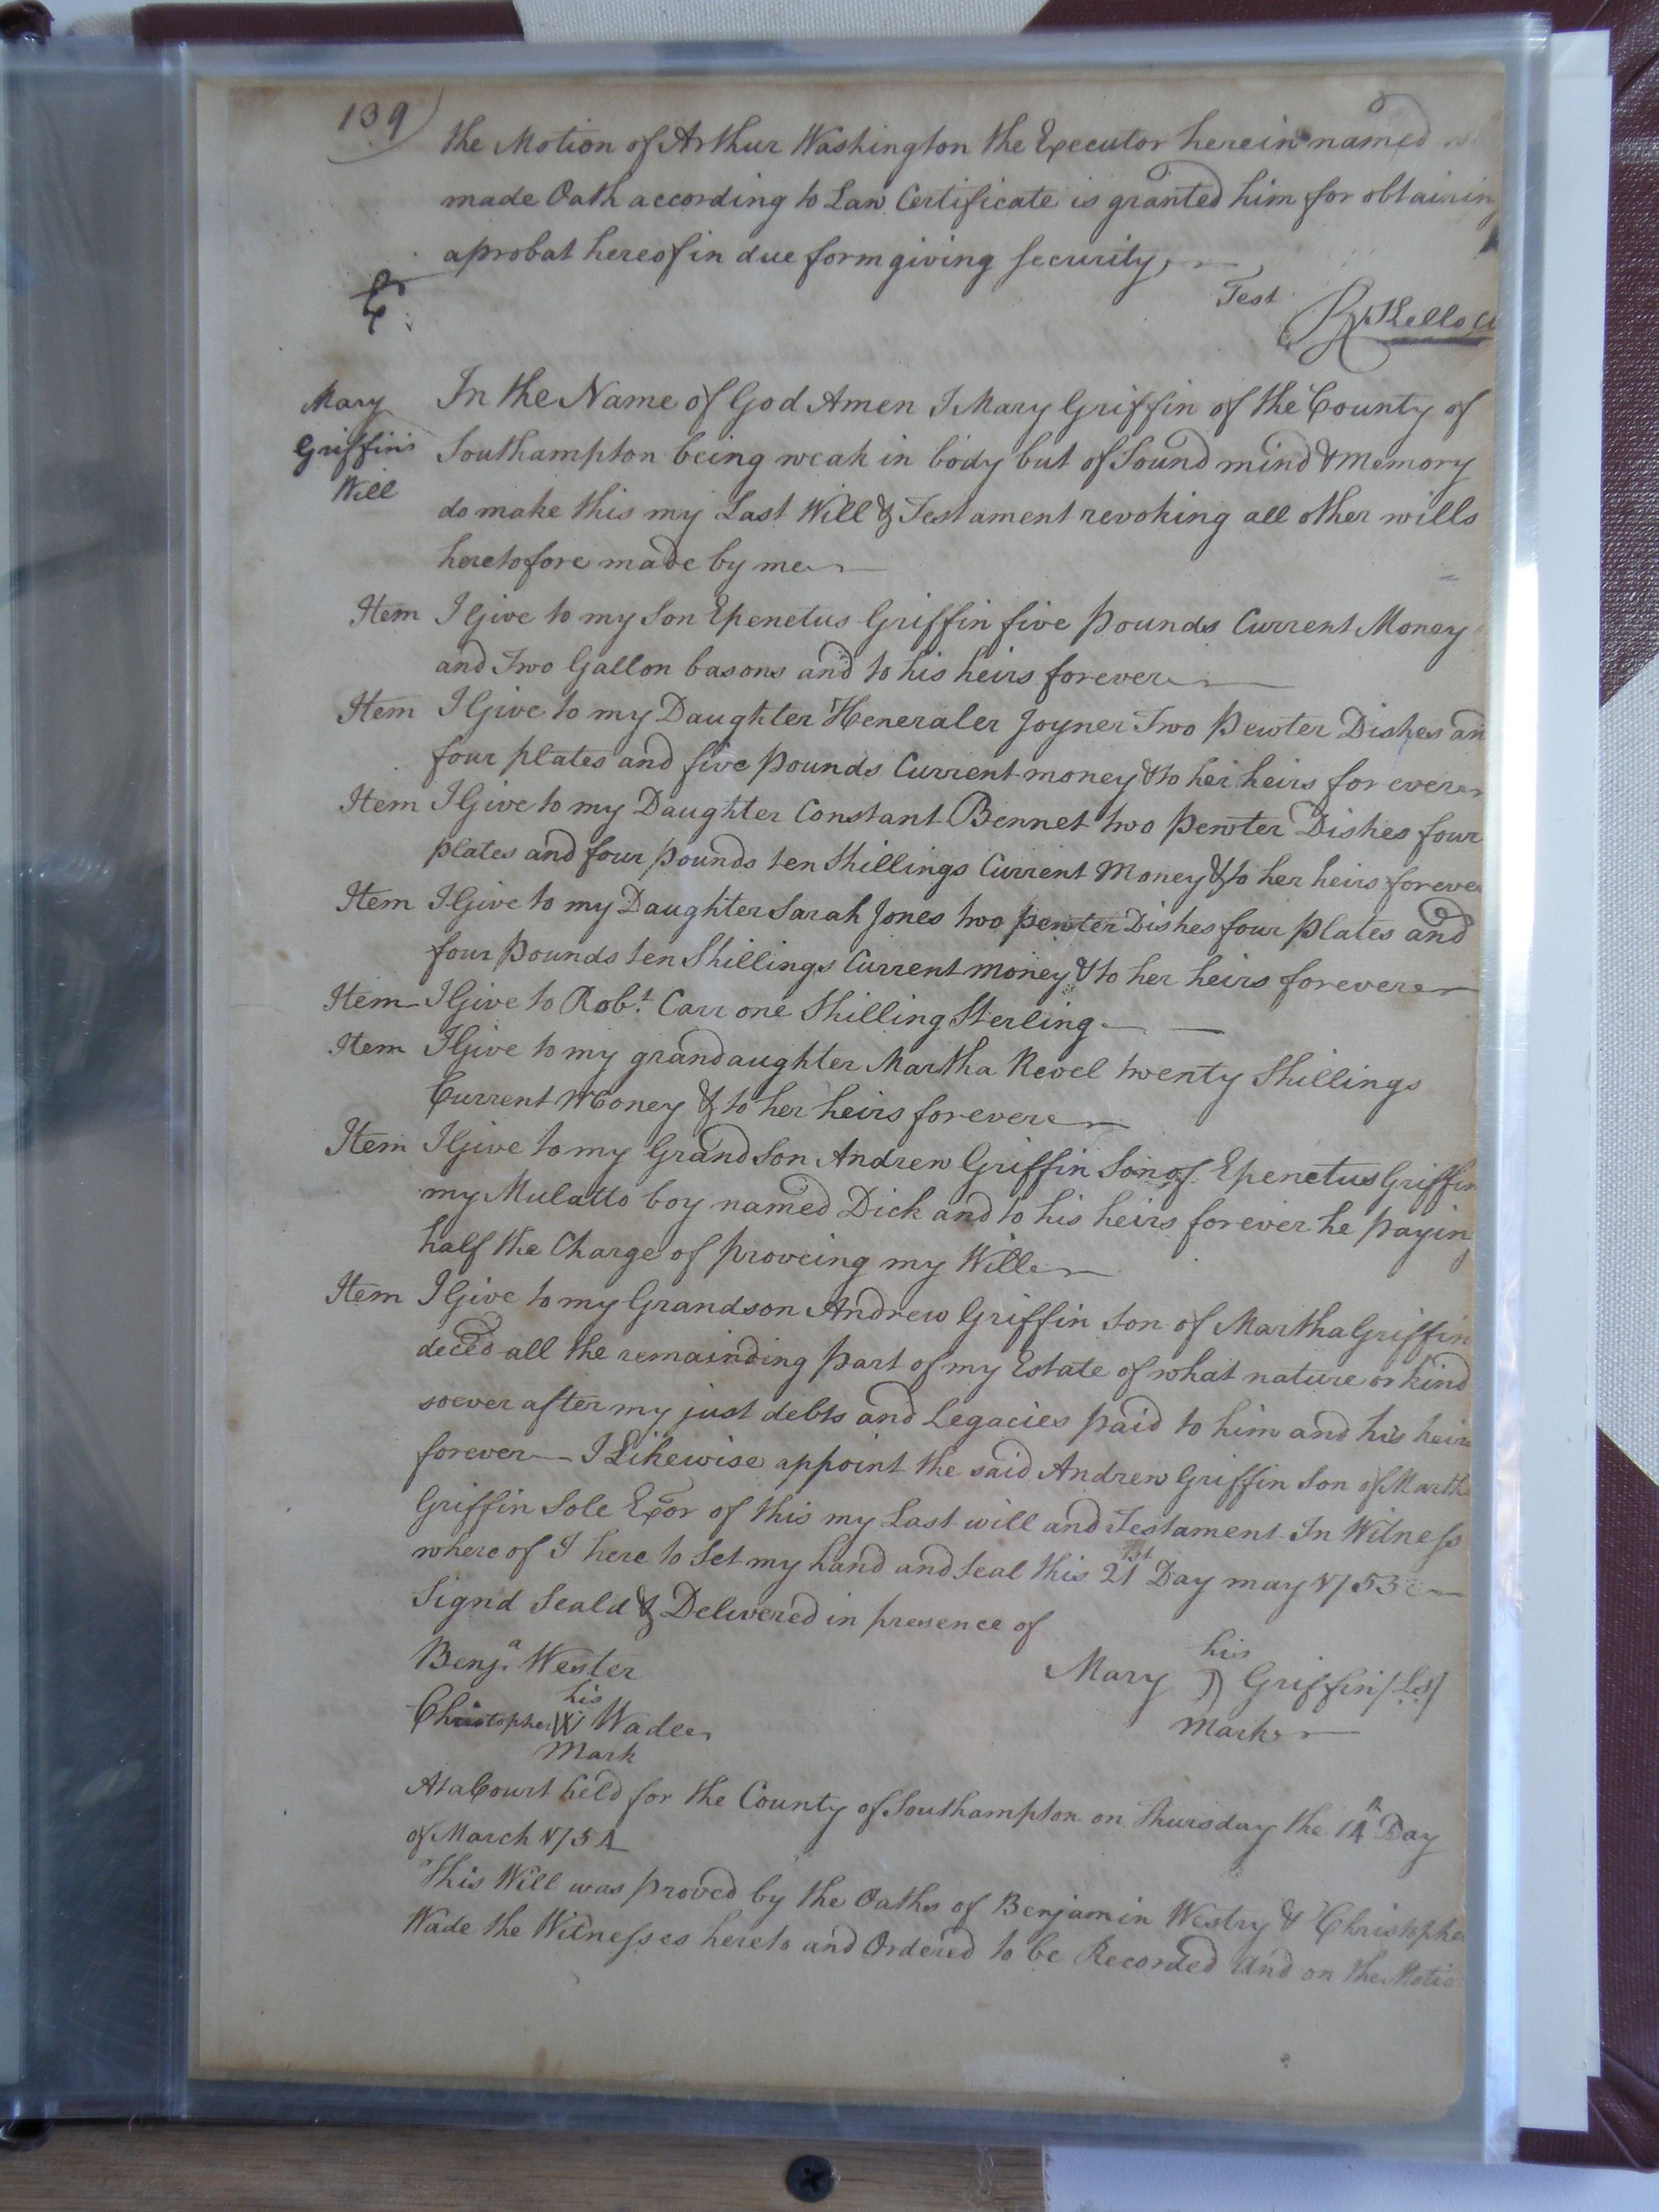 139)
the Motion of Arthur Washington the Executor herein named
made Oath according to Law Certificate is granted him for obtainin
a probat hereof in due form giving security,
Test
Mary
Griffin's
Will
In the Name of God Amen I Mary Griffin of the County of
Southampton being weak in body but of Sound mind & Memory
do make this my Last Will & Testament revoking all other wills
heretofore made by me
Item I Give to my Son Epenetus Griffin five pounds Current Money
and Two Gallon basons and to his heirs forever
Item I Give to my Daughter Heneraler Joyner Two Pewter Dishes an
four plates and five pounds Current money & to her heirs for ever
Item I Give to my Daughter Constant Bennet two Pewter Dishes four
plates and four pounds ten Shillings Current Money & to her heirs foreve
Item I Give to my Daughter Sarah Jones two pewter Dishes four plates and
four pounds ten Shillings Current money & to her heirs forever
Item I Give to Robt. Carr one Shilling Sterling
Item I Give to my grandaughter Martha Revel twenty Shillings
Current Money & to her heirs forever
Item I Give to my Grand Son Andrew Griffin Son of Epenetus Griffin
my Mulatto boy named Dick and to his heirs forever he paying
half the Charge of proveing my Will
Item I Give to my Grandson Andrew Griffin Son of Martha Griffin
deced all the remainding part of my Estate of what nature or kind
soever after my just debts and Legacies paid to him and his heirs
forever I Likewise appoint the said Andrew Griffin Son of Martha
Griffin Sole Exor of this my Last will and Testament In Witness
where of I here to Set my hand and Seal this 21st Day may 1753
Signd Seald & Delivered in presence of
Benja. Wester
his
Mary ) Griffin /Ls/
mark
his
Christopher W Wade
mark
At a Court held for the County of Southampton on Thursday the 14th Day
of March 1754
This Will was proved by the Oaths of Benjamin Westry & Christopher
Wade the Witnesses hereto and Ordered to be Recorded and on the Motio